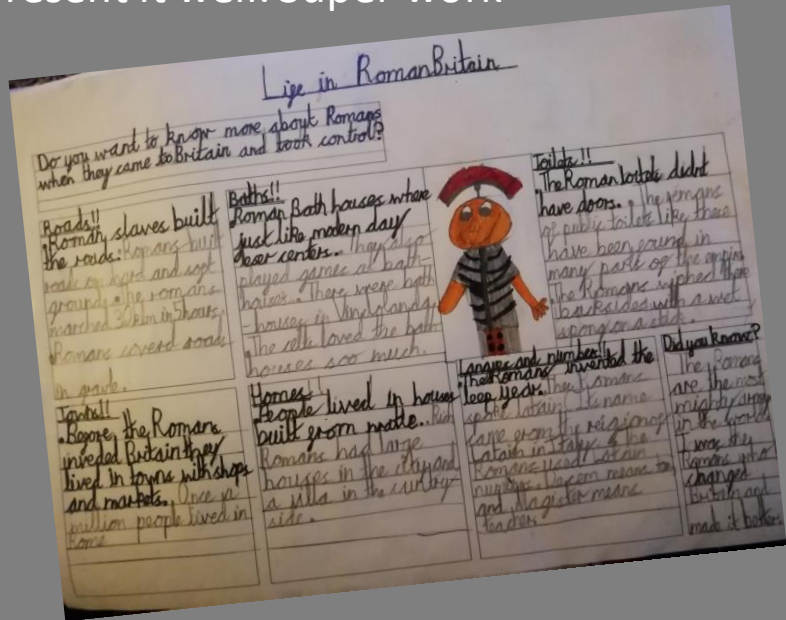 resent it well. Super work
Life in Roman Britain
Do you want to know more about Romans
when they came to Britain and took control?
Roads!!
• Roman slaves built
the roads. Romans built
roads on hard and soft
ground. The romans
marched 30km in 5 hours.
Romans coverd roads
in gravle.
Baths!!
• Roman Bath houses where
just like modern day
leser centers. They also
played games at bath
houses. There were bath
-houses in Vindolanda
• The celts loved the bath
houses soo much.
Toilets!!
• The Roman toilets didnt
have doors. The remans
of public toilets like these
have been found in
many parts of the empire
• The Romans wiphed there
backsides with a wet
sponge on a stick.
Towns!!
• Before, the Romans
inveded Britain they
lived in towns with shops
and markets. Once a
million people lived in
Rome
Homes!!
• People lived in houses
built from made.. Rich
Romans had large
houses in the city and
a villa in the country
side.
and number!!
• The Romans invented the
leep year. The Romans
spoke latain. Its name
came from the religion of
Latain in Italy. & the
Romans used Latain
numbers. Decem means ten
and Magister means
teacher.
Did you know?
The Romans
are the most
mighty army
in the world
I was the
Romans who
changed
Britain and
made it better.